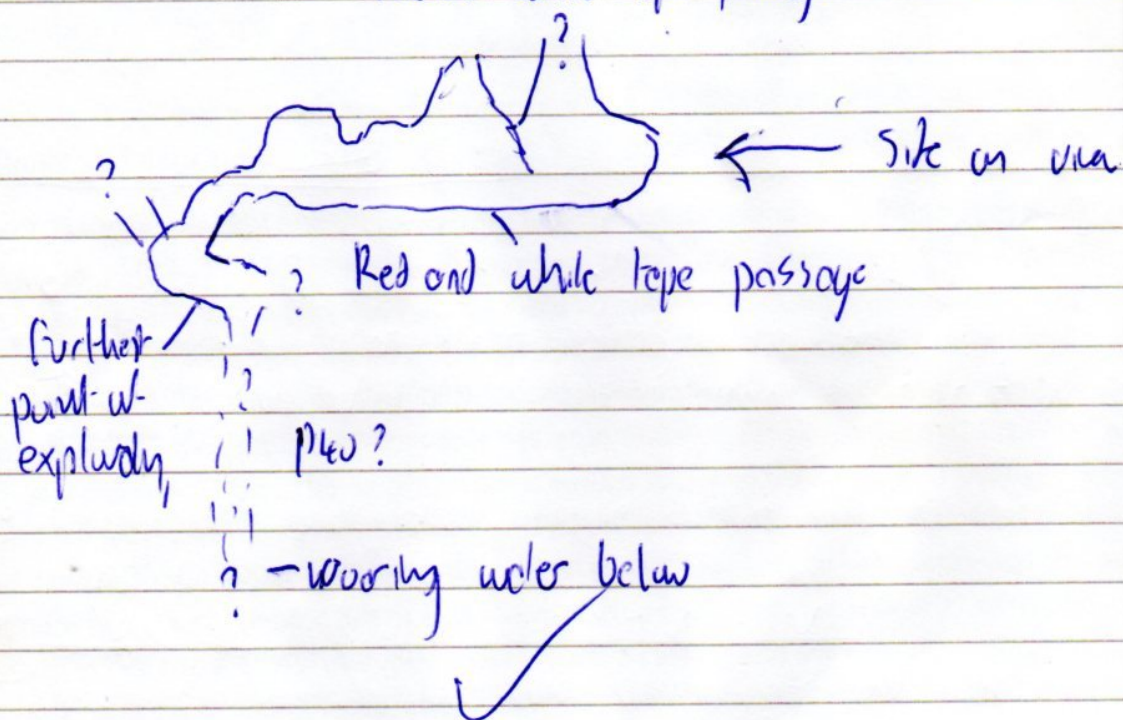 ?
?
Side on view
? Red and white tape passage
furthest
point of
exploration
?
P40?
? - roaring water below